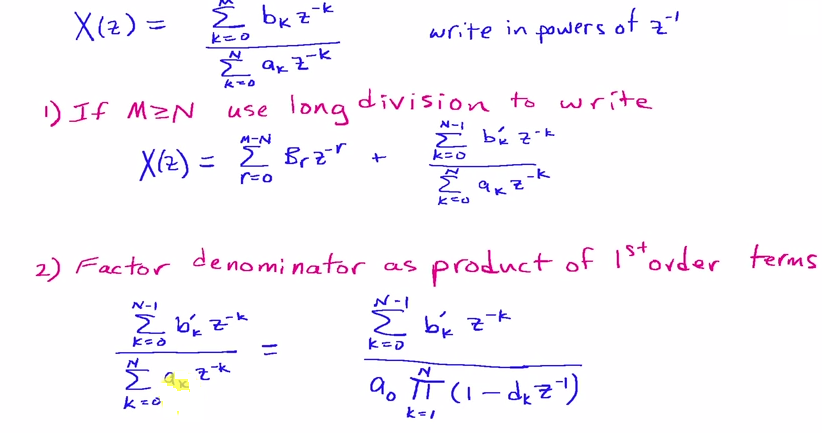 X(z) = \frac{\sum_{k=0}^{M} b_k z^{-k}}{\sum_{k=0}^{N} a_k z^{-k}} write in powers of z^{-1}
1) If M≥N use long division to write
X(z) = \sum_{r=0}^{M-N} B_r z^{-r} + \frac{\sum_{k=0}^{N-1} b'_k z^{-k}}{\sum_{k=0}^{N} a_k z^{-k}}
2) Factor denominator as product of 1^{st} order terms
\frac{\sum_{k=0}^{N-1} b'_k z^{-k}}{\sum_{k=0}^{N} a_k z^{-k}} = \frac{\sum_{k=0}^{N-1} b'_k z^{-k}}{a_0 \prod_{k=1}^{N} (1 - d_k z^{-1})}